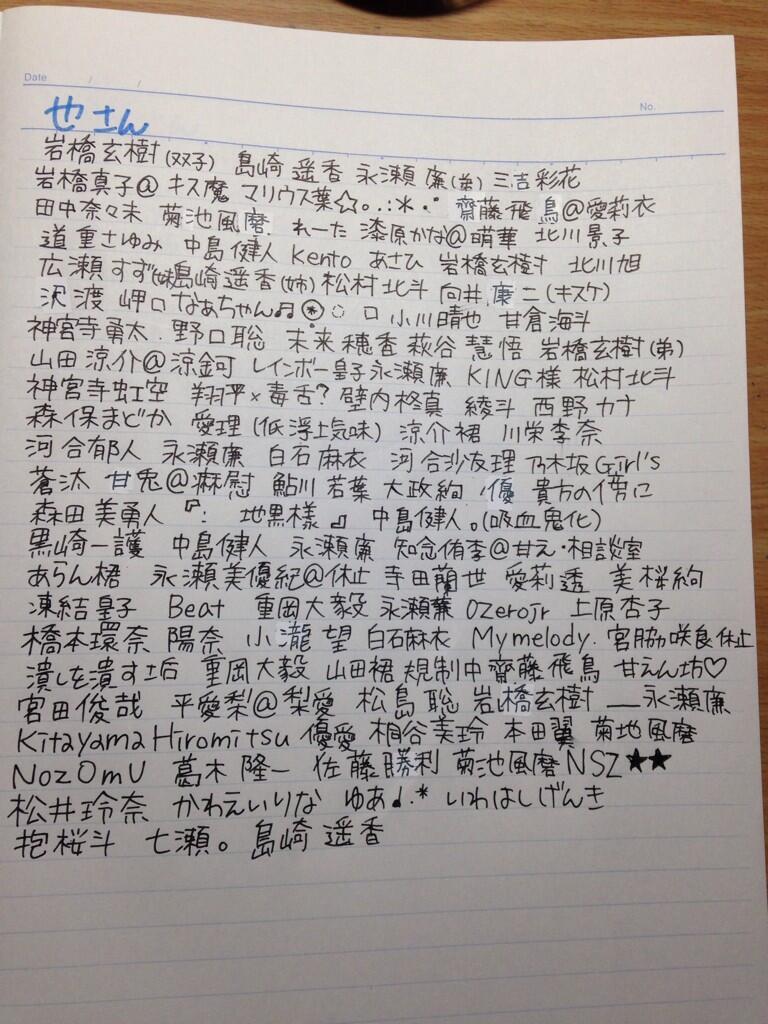 Date / /
No.
也さん
岩橋玄樹(双子) 島崎遥香 永瀬廉(弟) 三吉彩花
岩橋真子@キス魔 マリウス葉☆。.:*・゜ 齋藤飛鳥@愛莉衣
田中奈々未 菊池風磨. れーた 漆原かな@萌華 北川景子
道重さゆみ 中島健人 Kento あさひ 岩橋玄樹 北川旭
広瀬すず(妹)島崎遥香(姉) 松村北斗 向井康二(キスケ)
沢渡岬□なあちゃん♬ ⍟ ◌ □ 小川晴也 甘倉海斗
神宮寺勇太. 野口聡 未来穂香 萩谷慧悟 岩橋玄樹(弟)
山田涼介@涼鈳 レインボー皇子永瀬廉 KING様 松村北斗
神宮寺虹空 翔平×毒舌? 壁内柊真 綾斗 西野カナ
森保まどか 愛理(低浮上気味) 涼介裙 川栄李奈
河合郁人 永瀬廉 白石麻衣 河合沙友理 乃木坂Girl's
蒼汰 甘兎@麻慰 鮎川若葉 大政絢 優 貴方の傍に
森田美勇人 『: 地黒様 』 中島健人。(吸血鬼化)
黒崎一護 中島健人 永瀬廉 知念侑李@甘え・相談室
あらん桾 永瀬美優紀@休止 寺田蘭世 愛莉透 美桜絢
凍結皇子 Beat 重岡大毅 永瀬簾 Ozerojr 上原杏子
橋本環奈 陽奈 小瀧望 白石麻衣 Mymelody. 宮脇咲良休止
潰しを潰す垢 重岡大毅 山田裙規制中 齋藤飛鳥 甘えん坊♡
宮田俊哉 平愛梨@梨愛 松島聡 岩橋玄樹 __永瀬廉
Kitayama Hiromitsu 優愛 桐谷美玲 本田翼 菊地風磨
NozOmU 葛木隆一 佐藤勝利 菊池風磨NSZ★★
松井玲奈 かわえいりな ゆあ♩.* いわはしげんき
抱桜斗 七瀬。 島崎遥香